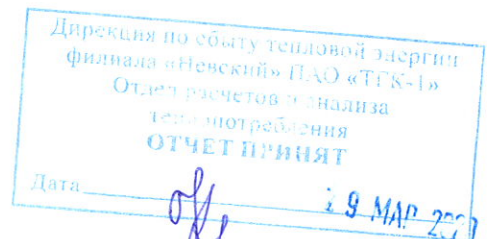 Дирекция по сбыту тепловой энергии
филиала «Невский» ПАО «ТГК-1»
Отдел расчетов и анализа
теплопотребления
ОТЧЕТ ПРИНЯТ
Дата
МАР